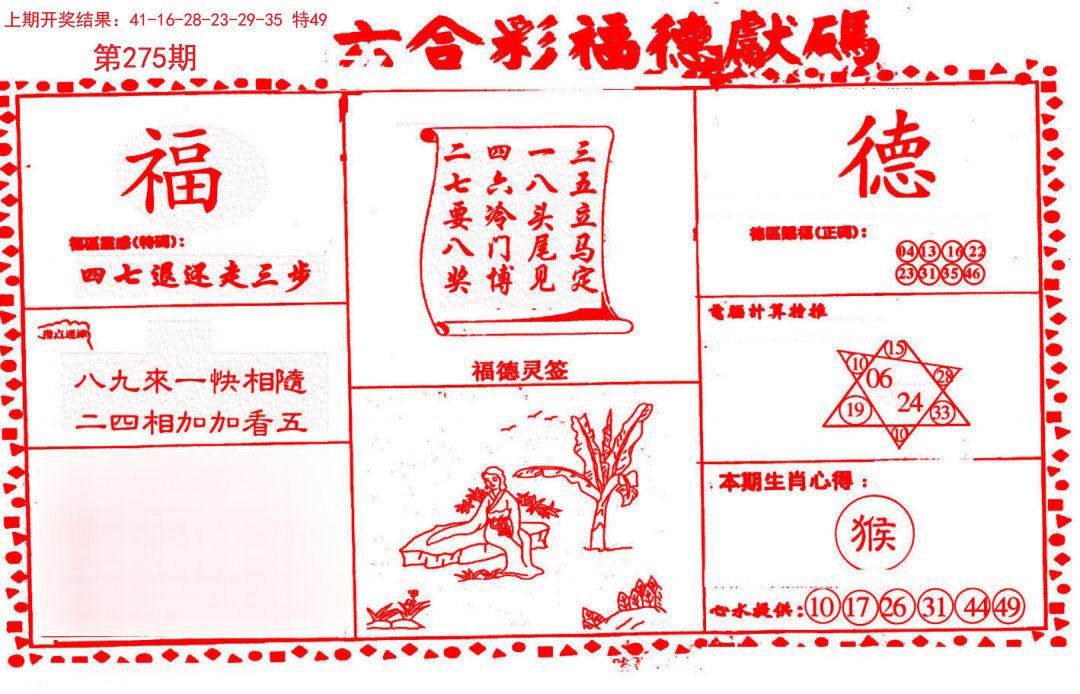 上期开奖结果：41-16-28-23-29-35 特49
第275期
六合彩福德獻碼
福
福區靈感(特碼)：
四七退还走三步
指点迷津
八九來一快相隨
二四相加加看五
三五立马定
一八头尾见
四六冷门博
二七要八奖
福德灵签
德
德區賜福(正碼)：
04 13 16 22
23 31 35 46
電腦計算特推
15
10 06 28
19 24 33
10
本期生肖心得：
猴
心水提供：10 17 26 31 44 49